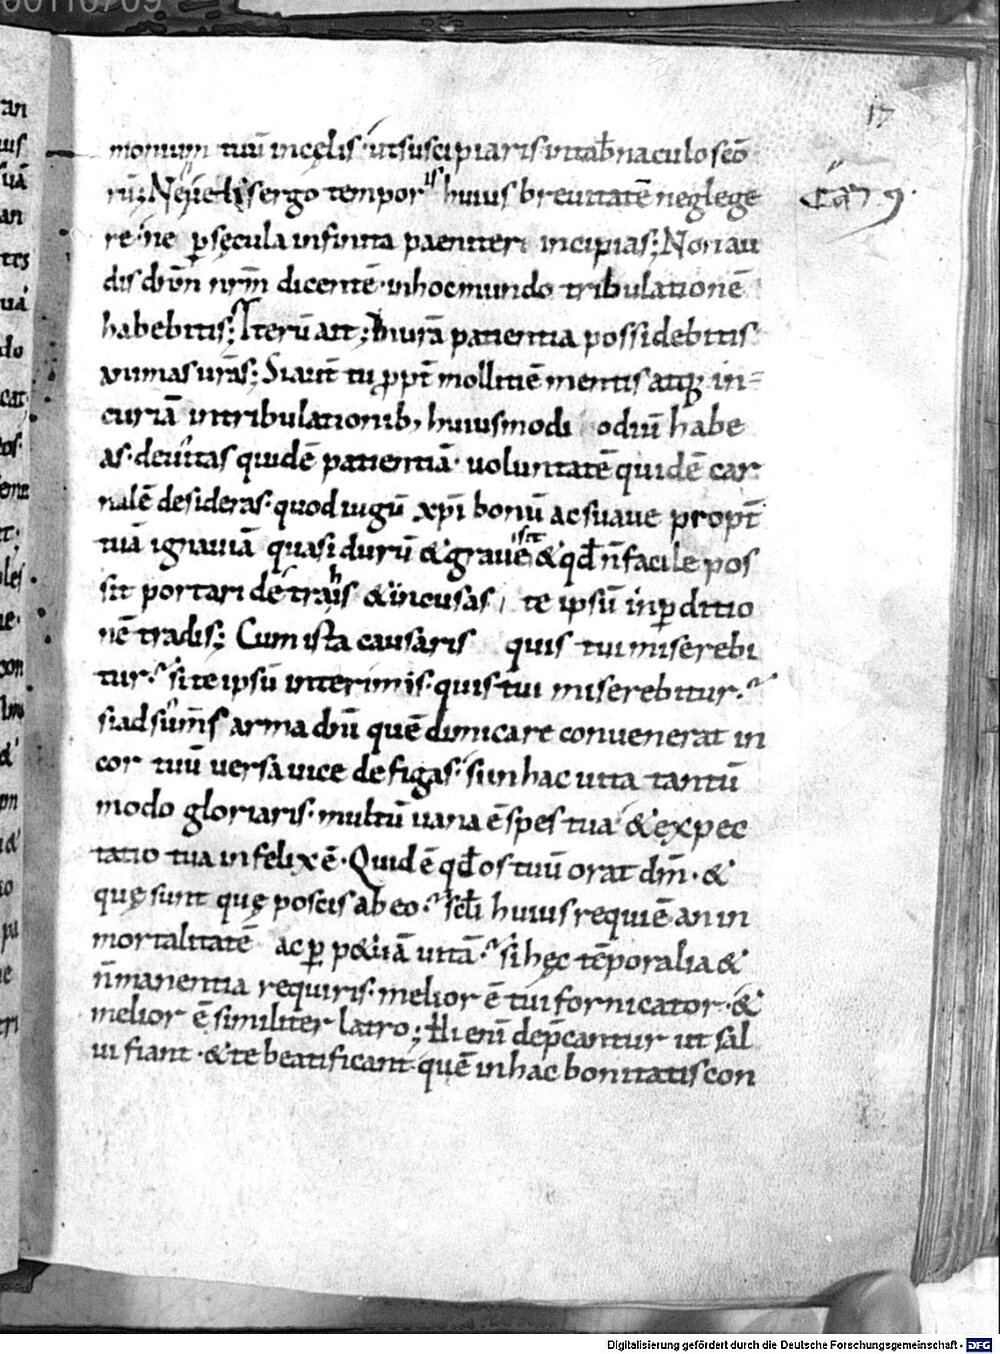 17
monium tuũ incęlis· ut suscipiaris intab̃naculo scõ
rũ; Nequelis ergo tempor is huius breuitatẽ neglege
re· ne p̱ sęcula infinita paeniteri incipias; Non au
dis dñm nr̃m dicentẽ· inhocmundo tribulationẽ
habebitis; Iterũ ait; Inurã patientia possidebitis
animas ur̃as; Siaut̃ tu ꝓpt̃ mollitiẽ mentis atq; in-
curiã intribulationib; huiusmodi odiũ habe
as· deuitas quidẽ patientiã· uoluntatẽ quidẽ car
nalẽ desideras· quod iugũ xp̃i bonũ ac suaue propt̃
tuã ignauiã quasi durũ & grauẽ sit & qđ ñ facile pos
sit portari detrahis & incusas, te ipsũ inp̱ditio
nẽ tradis; Cum ista causaris quis tui miserebi
tur? si te ipsũ interimis· quis tui miserebitur?
si adsum̃s arma dñi quẽ dimicare conuenerat in
cor tuũ uersa uice defigas· si in hac uita tantũ
modo gloriaris· multũ uana ẽ spes tua & expec
tatio tua infelix ẽ· Quid ẽ qđ os tuũ orat dm̃· &
quę sunt quę poscis ab eo? scłi huius requiẽ an in
mortalitatẽ ac p̱p&uã uitã? si hęc tẽporalia &
ñ manentia requiris· melior ẽ tui fornicator· &
melior ẽ similiter latro; Hi enĩ dep̃cantur ut sal
ui fiant· & te beatificant quẽ in hac bonitatis con
Digitalisierung gefördert durch die Deutsche Forschungsgemeinschaft - DFG